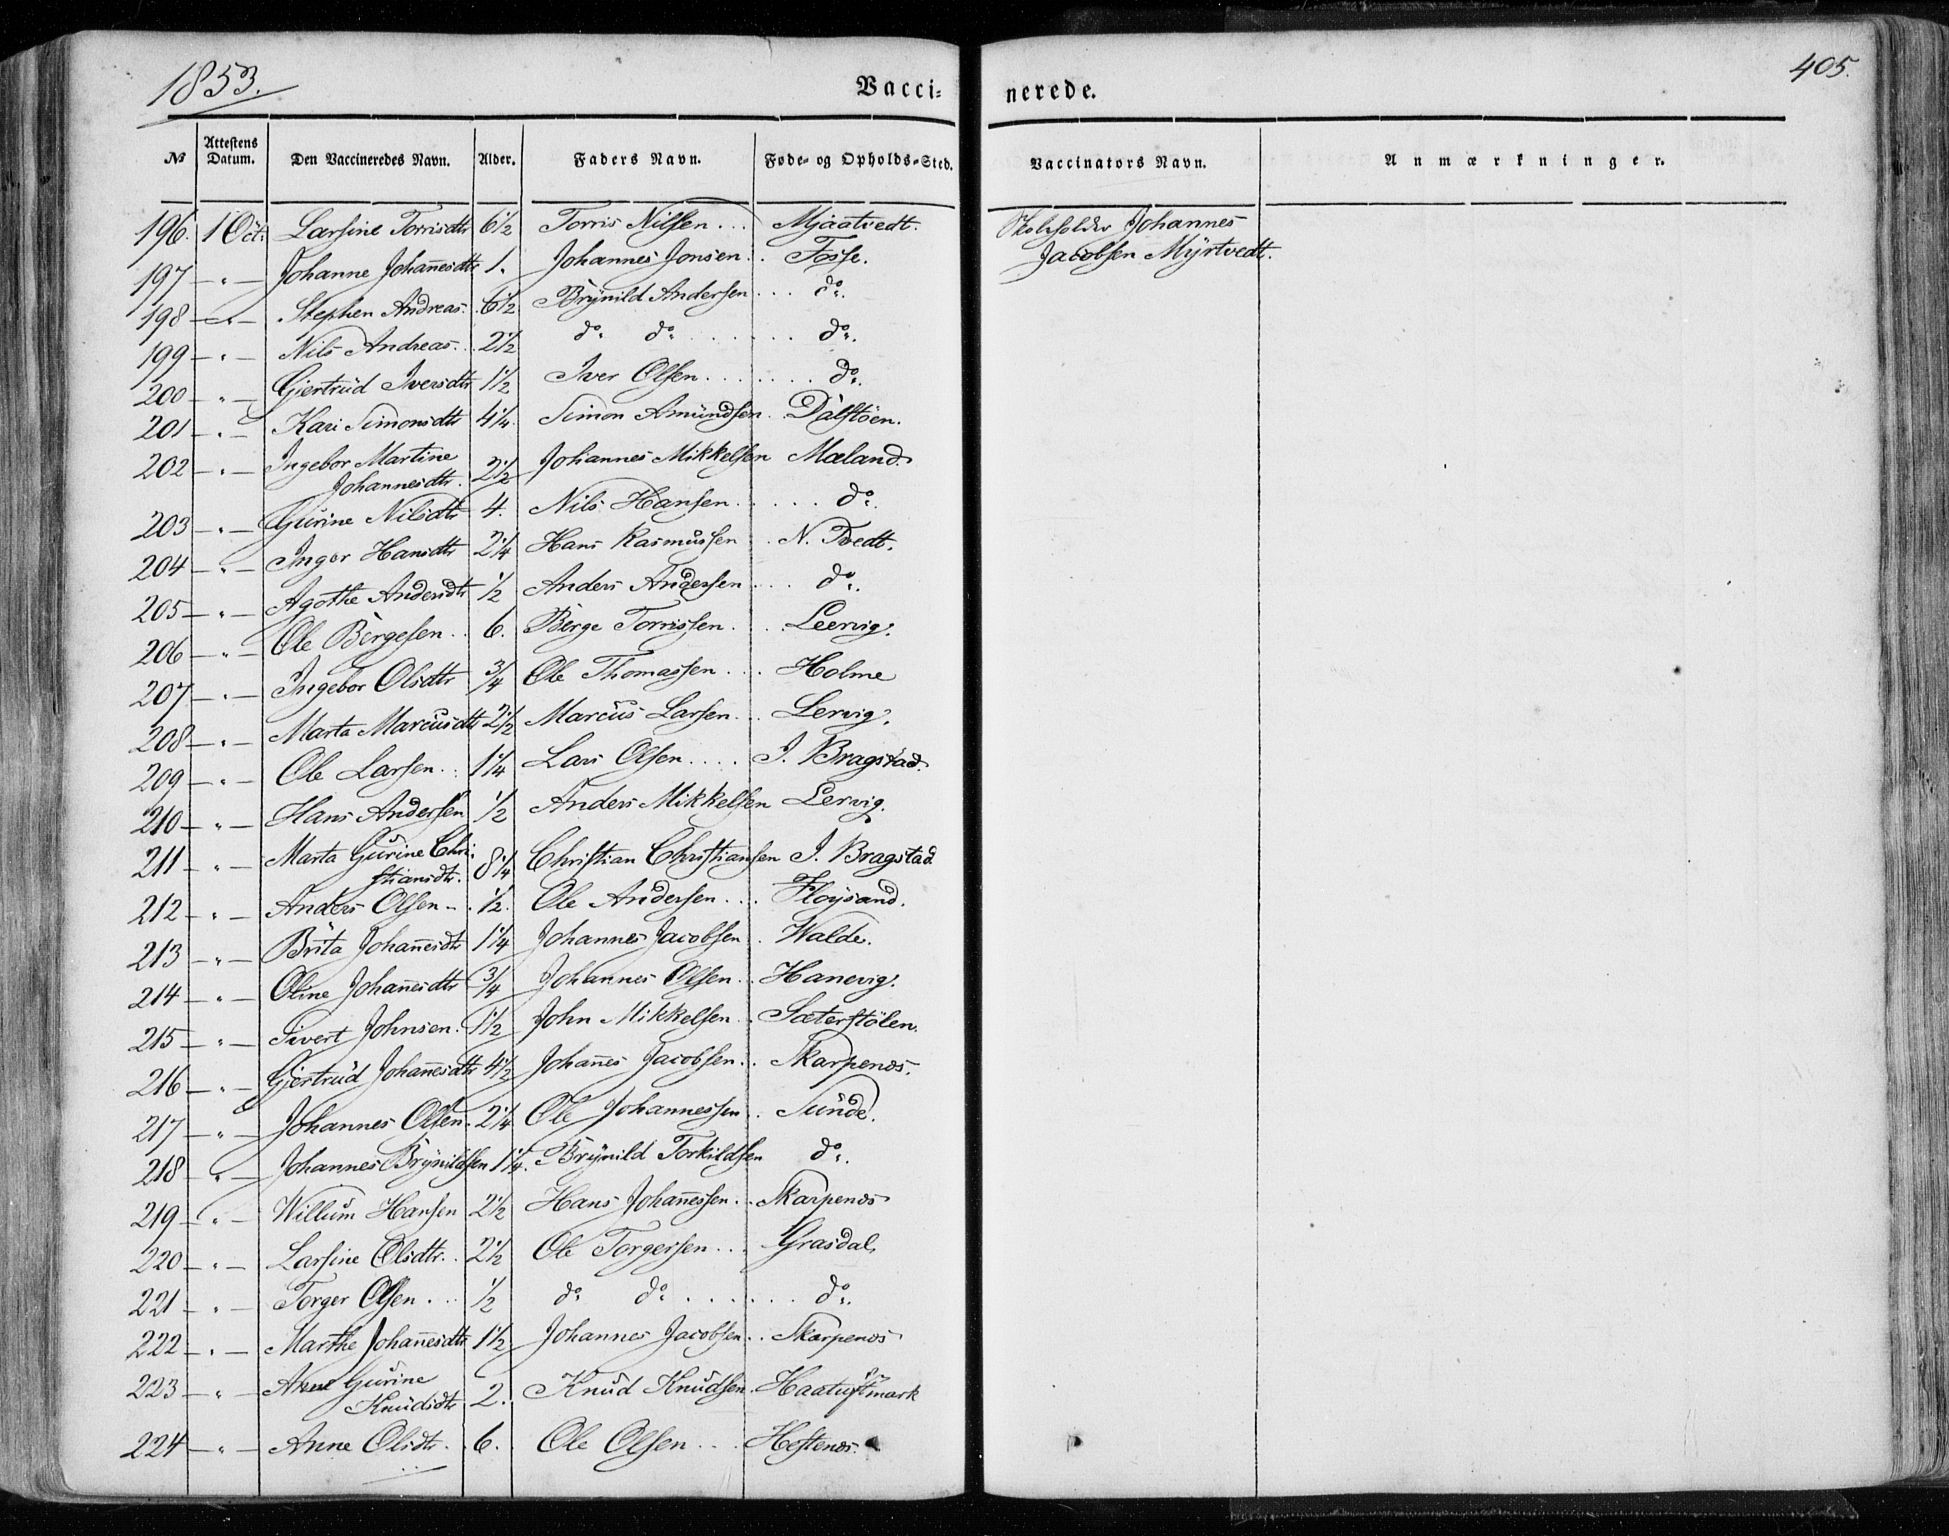 1853.
405.
Vacci-
nerede.
№
Attestens Datum.
Den Vaccineredes Navn.
Alder.
Faders Navn.
Føde- og Opholds-Sted.
Vaccinators Navn.
Anmærkninger.
196. 1 Oct: Larsine Torrisdtr 6 1/2 Torris Nilsen... Mjaatvedt. Skoleholder Johannes
Jacobsen Myrtvedt.
197 — " — Johanne Johan̄esdtr 1. Johannes Jonsen.. Fosse.
198 — " — Stephen Andreas. 6 1/2 Brÿnild Andersen... do.
199 — " — Nils Andreas.. 2 1/2 do. do....... do.
200 — " — Gjertrud Iversdtr 1 1/2 Iver Olsen....... do.
201 — " — Kari Simonsdtr 4 1/4. Simon Amundsen.. Dalstöen.
202 — " — Ingebor Martine
Johannesdtr. 2 1/2 Johannes Mikkelsen Mæland.
203 — " — Gurine Nilsdtr 4. Nils Hansen..... do.
204 — " — Inger Hansdtr 2 1/4 Hans Rasmussen.. N. Tvedt.
205 — " — Agothe Andersdtr 1/2 Anders Andersen... do.
206 — " — Ole Börgesen.. 6. Börge Torrissen... Leervig.
207 — " — Ingebor Olsdtr 3/4 Ole Thomassen... Holme
208 — " — Marta Marcusdtr 2 1/2 Marcus Larsen... Lervig.
209 — " — Ole Larsen.. 1 1/4 Lars Olsen.... I. Bragstad.
210 — " — Hans Andersen 1/2 Anders Mikkelsen Lervig.
211 — " — Marta Gurine Chri-
stiansdtr. 8 1/4 Christian Christiansen I. Bragstad
212 — " — Anders Olsen -. 1/2. Ole Andersen.... Floysand.
213 — " — Brita Johan̄esdtr 1 1/4 Johannes Jacobsen. Walde.
214 — " — Oline Johan̄esdtr 3/4 Johannes Olsen.. Hanevig.
215 — " — Sivert Johnsen. 1 1/2 John Mikkelsen.. Sæterstölen.
216 — " — Gjertrud Johan̄esdtr 4 1/2 Johan̄es Jacobsen.. Skarpenæs.
217 — " — Johannes Olsen. 2 1/4 Ole Johannessen. Sunde.
218 — " — Johannes Brÿnildsen 1 1/4. Brÿnild Torkildsen do.
219 — " — Willum Hansen 2 1/2 Hans Johan̄essen.. Skarpenæs
220 — " — Larsine Olsdtr.. 2 1/2 Ole Torgersen... Grasdal.
221 — " — Torger Olsen... 1/2 do. do....... do.
222 — " — Marthe Johan̄esdtr 1 1/2 Johannes Jacobsen.. Skarpenæs
223 — " — Anne Gurine
Knudsdtr 2. Knud Knudsen. Haatuftmark
224 — " — Anne Olsdtr.. 6. Ole Olsen... Hestenæs.